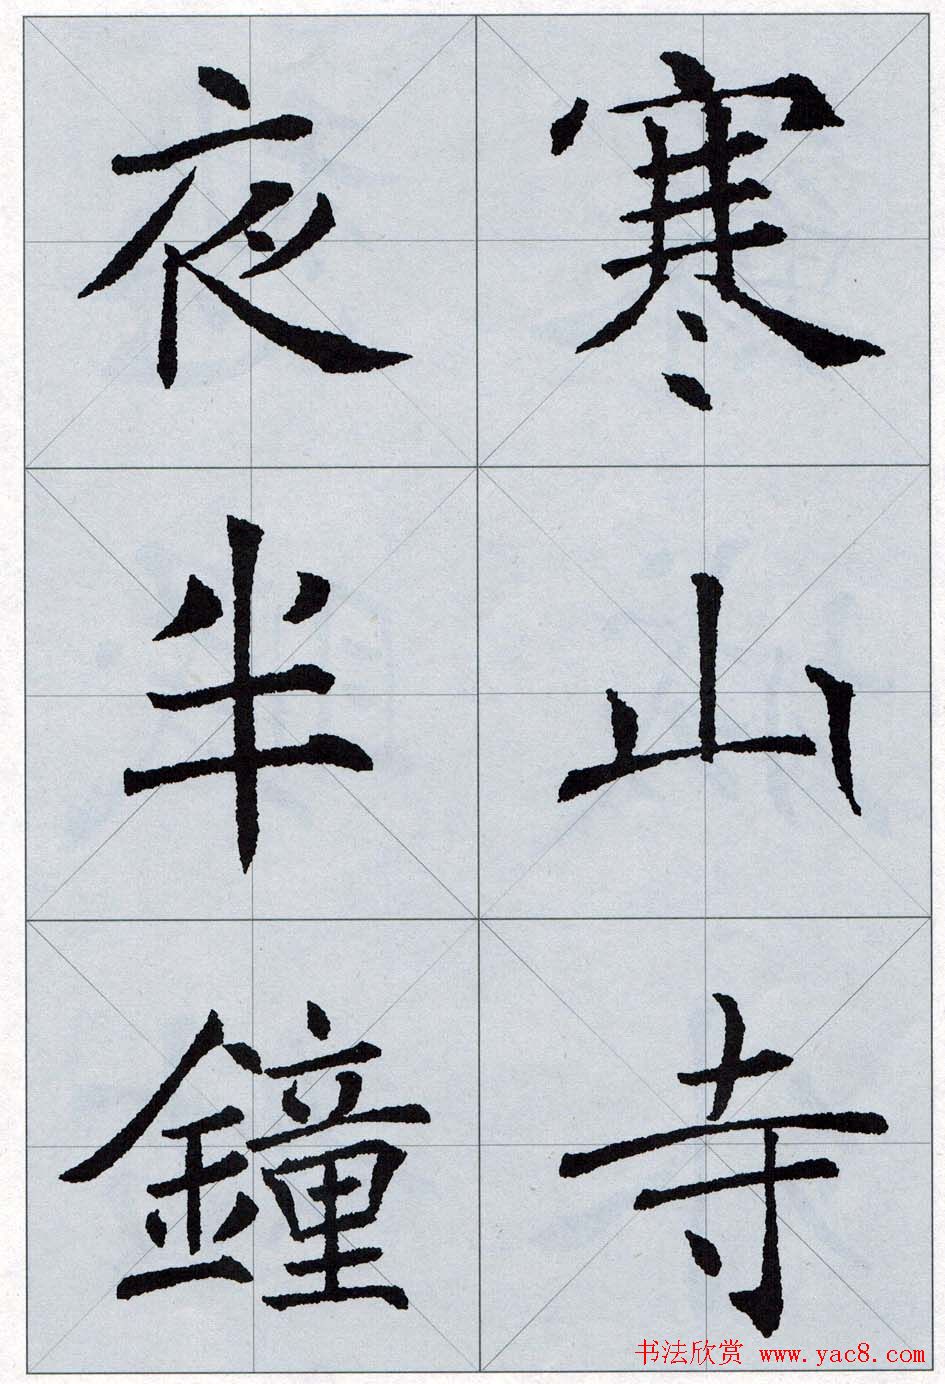 寒山寺
夜半鐘
书法欣赏 www.yac8.com